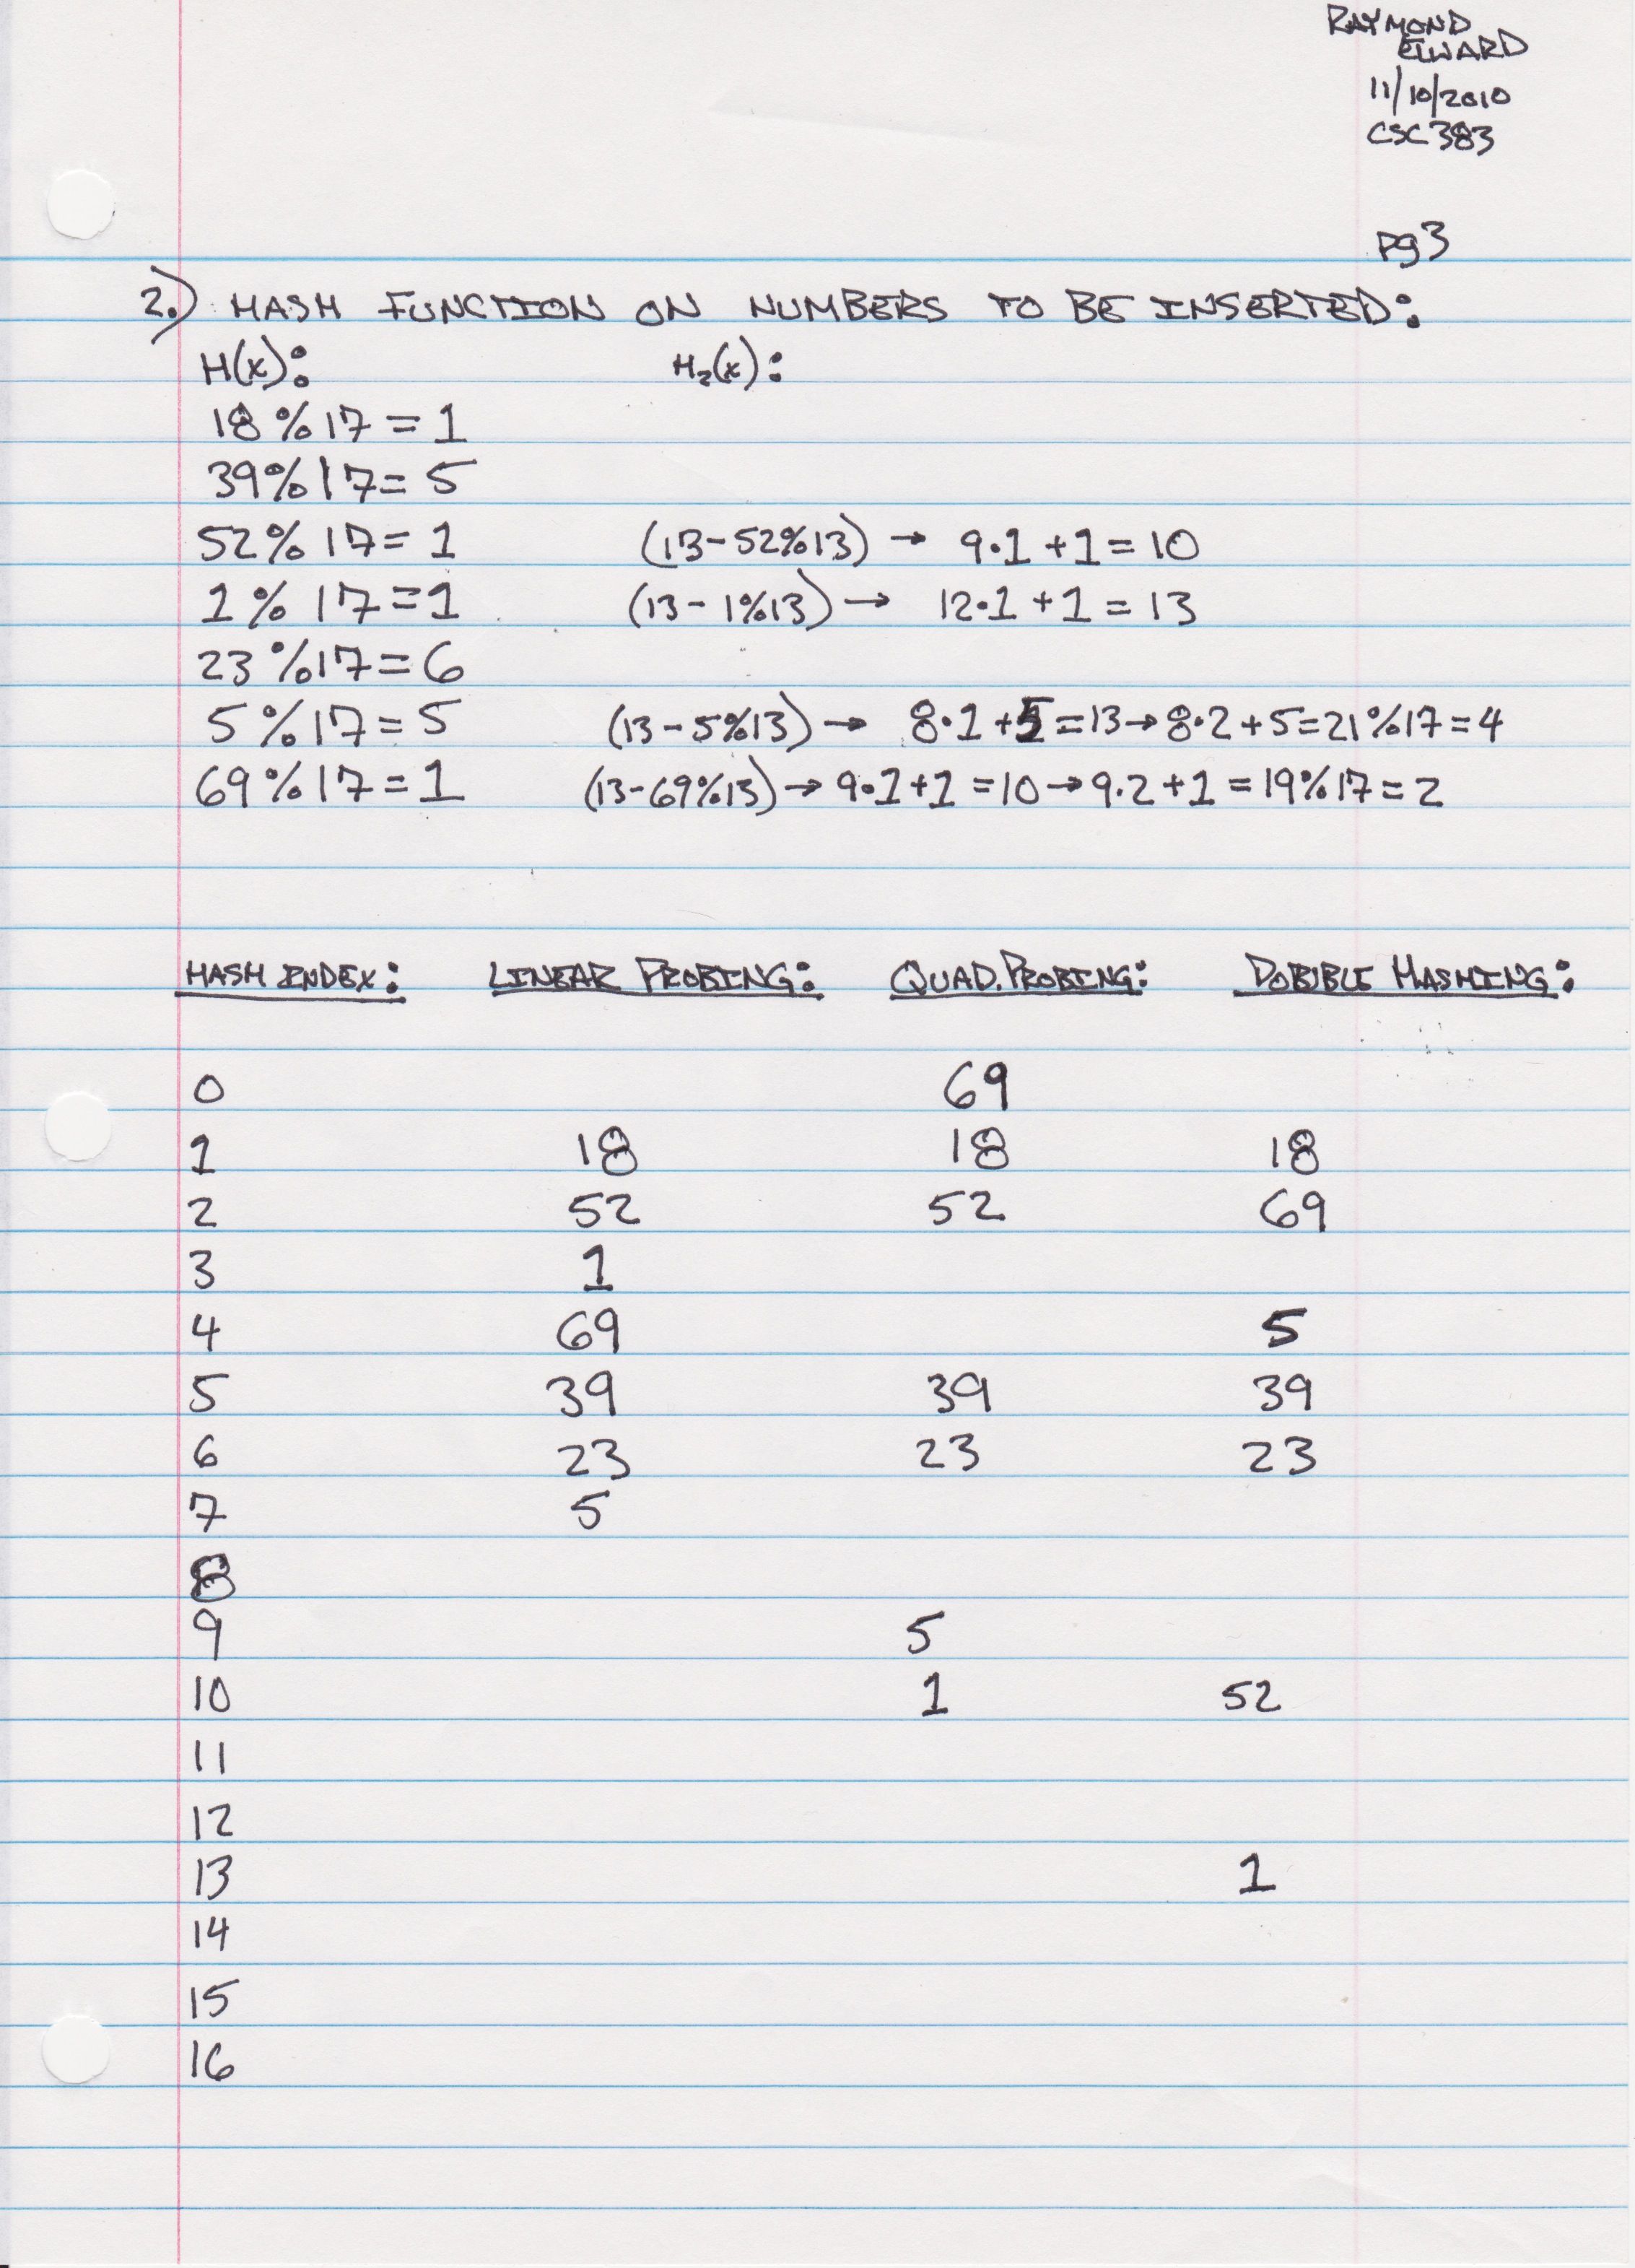 RAYMOND
ELWARD
11/10/2010
CSC383
pg3
2.) HASH FUNCTION ON NUMBERS TO BE INSERTED:
H(x): H₂(x):
18%17=1
39%17=5
52%17=1 (13-52%13) → 9·1+1=10
1%17=1 (13-1%13) → 12·1+1=13
23%17=6
5%17=5 (13-5%13) → 8·1+5=13→8·2+5=21%17=4
69%17=1 (13-69%13) → 9·1+1=10→9·2+1=19%17=2
HASH INDEX: LINEAR PROBING: QUAD. PROBING: DOBIBLE HASHING:
0 69
1 18 18 18
2 52 52 69
3 1
4 69 5
5 39 39 39
6 23 23 23
7 5
8
9 5
10 1 52
11
12
13 1
14
15
16